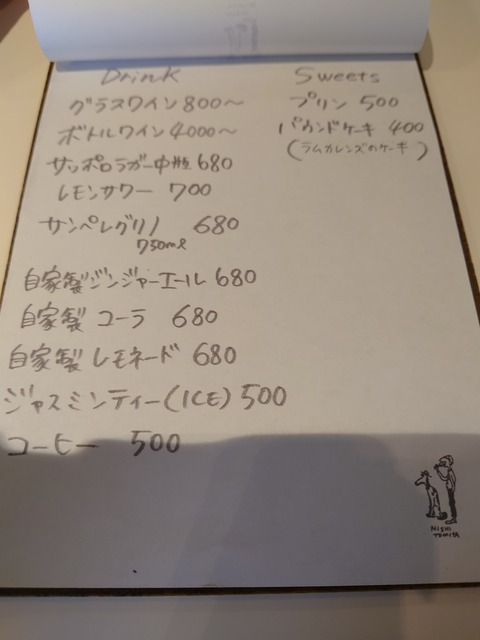 Drink
グラスワイン 800〜
ボトルワイン 4000〜
サッポロラガー中瓶 680
レモンサワー 700
サンペレグリノ 680
750ml
自家製ジンジャーエール 680
自家製 コーラ 680
自家製 レモネード 680
ジャスミンティー(ICE) 500
コーヒー 500
Sweets
プリン 500
パウンドケーキ 400
(ラムカレンズのケーキ)
NISHI
TOMIYA